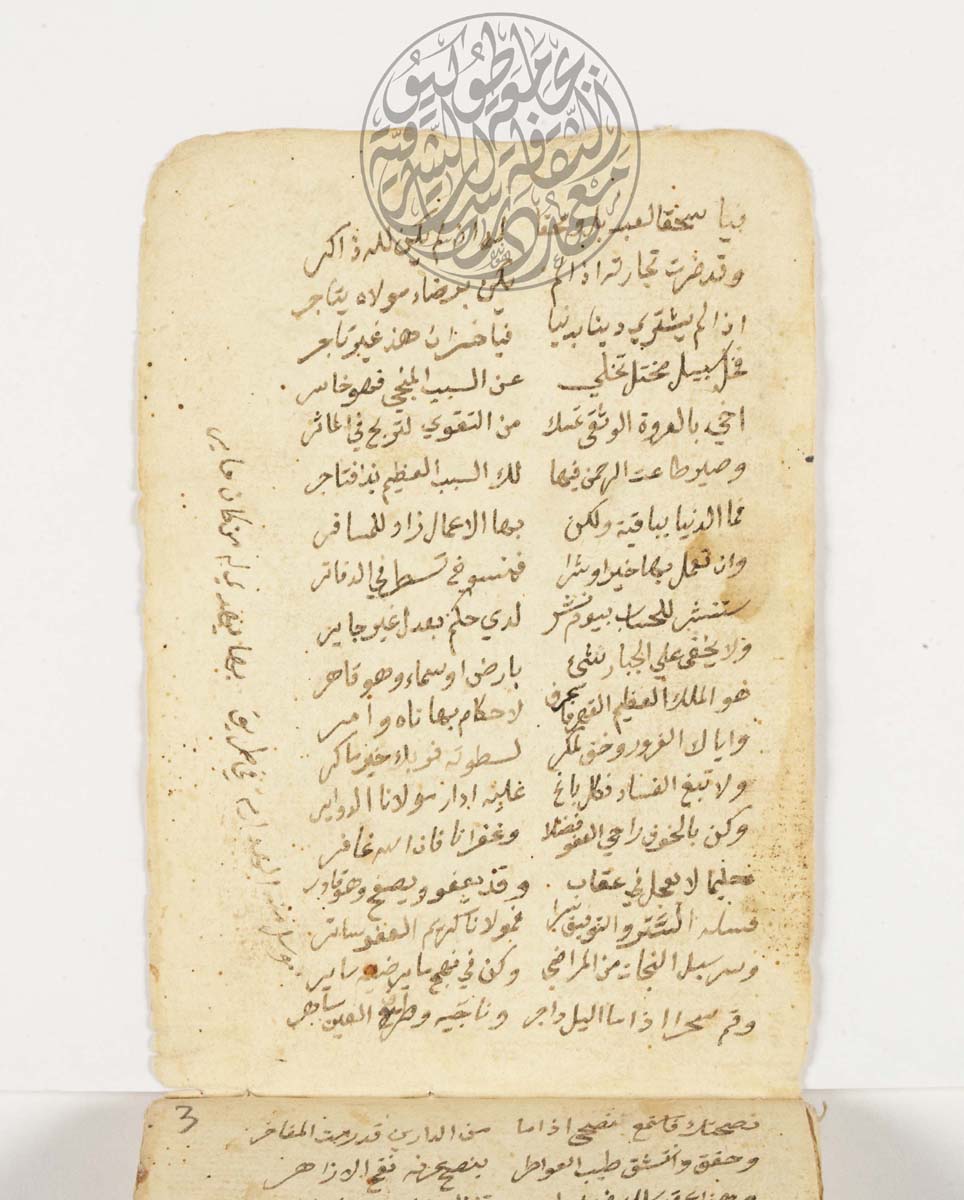 فيا سحقا لعبد
وقد خسرت تجارته اذا لم يكن برضاء مولاه يتاجر
اذا لم يشتري دينا بدنيا فيا خسران هذ غير تاجر
فخل سبيل مختل تخلي عن السبب المنجي فهو خاسر
اخي بالعروة الوثقى تمسك من التقوي لتربح في الماثر
وصير طاعت الرحمن فيها لك السبب العظيم بذا فتاجر
فما الدنيا بباقية ولكن بها الاعمال زاد للمسافر
وان تعمل بها خيرا وشرا فمنسوخ تسطر في الدفاتر
ستنشر للحساب بيوم نشر لدي حكم بعدل غير جاير
ولا يخفى علي الجبار شئ بارض او سماء وهو قاهر
هو الملك العظيم لاحكام بها ناه وامر
واياك الغرور وخف لمكر لسطوته فربك خير ماكر
ولا تبغ الفساد فكل باغ عليه ادار مولانا الدواير
وكن بالخوف راجي العفو فضلا وغفرانا فان الله غافر
حليما لا يعجل في عقاب وقد يعفو ويصفح وهو قادر
فسله الستر والتوفيق سرا فمولانا كريم العفو ساتر
وسر سبل النجات من المراضي وكن في نهج ما يرضيه ساير
وقم سحرا اذا ما اليل داجر وناجيه وطرف العين ساهر
بها يهتدي من كان حاير
في طريق
3
نصحتك فاستمع نصحي اذا ما من الدارين قد رمت المفاخر
وحقق وانتشق طيب العواطر بنصح عرفه نفح الازاهر